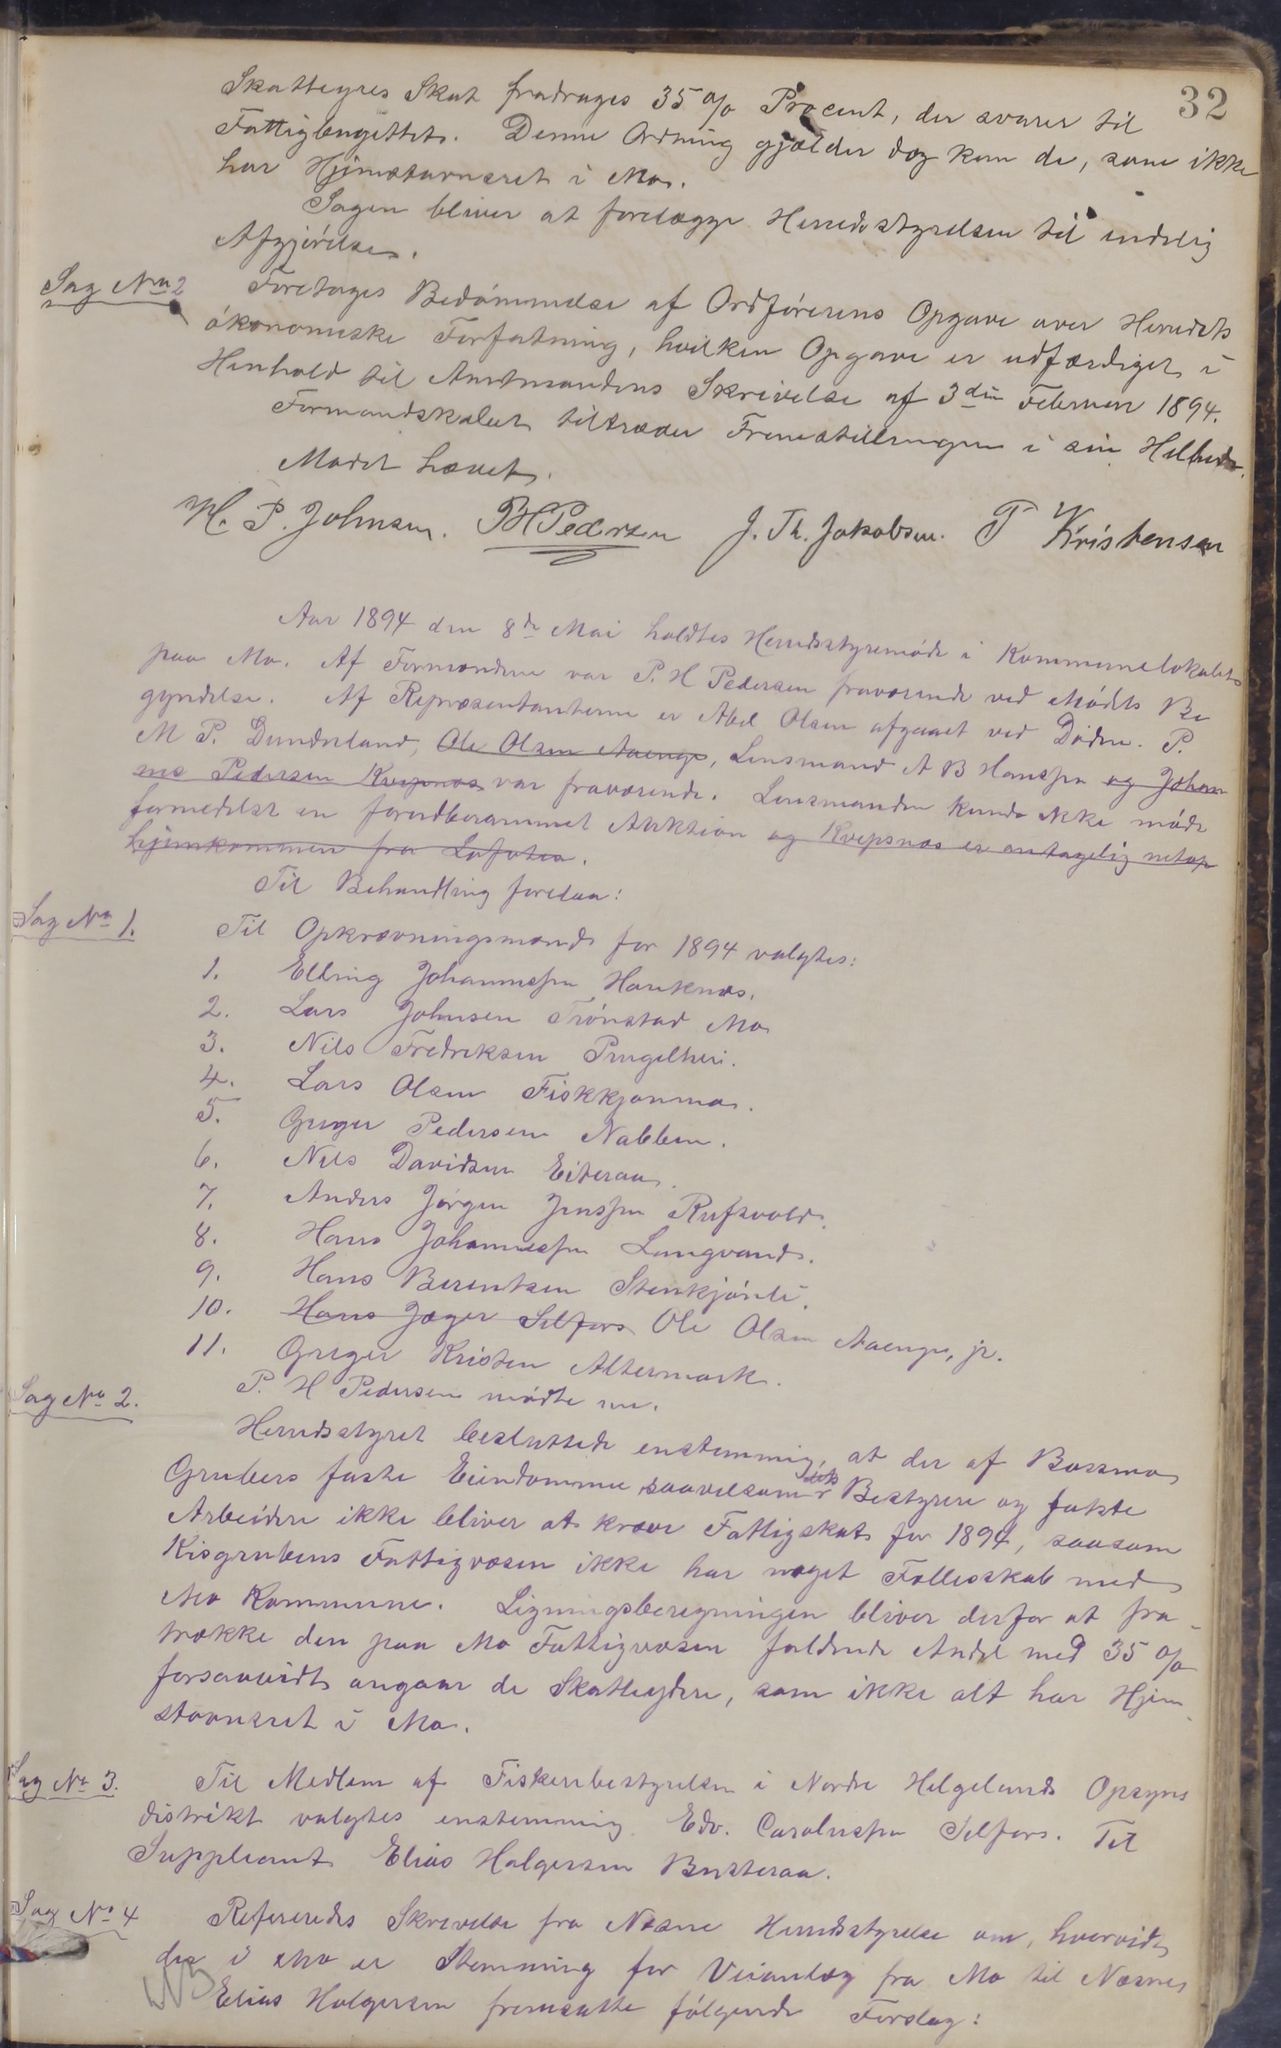 32
Skatteyres Skat fradrages 35 % Procent, der svarer til
Fattigbugettet. Denne Ordning gjælder dog kun de, som ikke
har Hjemstavnsret i Mo.
Sagen bliver at forelægge Herredsstyrelsen til endelig
Afgjörelse.
Sag No 2
Foretoges Bedömmelse af Ordförerens Opgave over Herredets
ökonomiske Forfatning, hvilken Opgave er udfærdiget i
Henhold til Amtmandens Skrivelse af 3die Februar 1894.
Formandskabet tiltræder Fremstillingen i sin Helhed.
Mödet hævet.
H. P. Johnsen. PHPedersen J. Th. Jakobsen. P Kristensen
Aar 1894 den 8de Mai holdtes Herredsstyremöde i Kommunelokalet
paa Mo. Af Formændene var P. H Pedersen fraværende ved Mödets Be
gyndelse. Af Repræsentanterne er Abel Olsen afgaaet ved Döden. P.
M P. Dunderland, Ole Olsen Aaenge, Lensmand A B Hanssen og Johan
nes Pedersen Kvepsnæs var fraværende. Lensmanden kunde ikke möde
formedelst en forudberammet Auktion og Kvepsnæs er antagelig netop
hjemkommen fra Lofoten.
Til Behandling forelaa:
Sag No 1.
Til Opkrævningsmænd for 1894 valgtes:
1. Elling Johannessen Hauknæs.
2. Lars Johnsen Trönstad Mo
3. Nils Fredriksen Prugelhei.
4. Lars Olsen Fiskkjønmo.
5. Greger Pedersen Nabben.
6. Nils Davidsen Eiteraa.
7. Anders Jörgen Jenssen Rufsvold.
8. Hans Johannessen Langvand.
9. Hans Berentsen Stenkjönli.
10. Hans Jæger Selfors Ole Olsen Aaenge, jr.
11. Greger Kristen Altermark.
Sag No 2.
P. H Pedersen mödte nu.
Herredsstyret besluttede enstemmig, at der af Bossmo
Grubers faste Eiendomme saavelsom dets Bestyrere og faste
Arbeidere ikke bliver at kræve Fattigskat for 1894, saasom
Kisgrubens Fattigvæsen ikke har noget Fællesskab med
Mo Kommune. Ligningsberegningen bliver derfor at fra-
trække den paa Mo Fattigvæsen faldende Andel med 35 %
forsaavidt angaar de Skatteydere, som ikke alt har Hjem-
stavnsret i Mo.
Sag No 3.
Til Medlem af Fiskeribestyrelsen i Nordre Helgelands Opsyns
distrikt valgtes enstemmig Edv. Carolussen Selfors. Til
Suppleant Elias Holgersen Busteraa.
Sag No 4
Refereredes Skrivelse fra Næsne Herredsstyrelse om, hvorvidt
der i Mo er Stemning for Veianlæg fra Mo til Næsne,
NB
Elias Holgersen fremsatte fölgende Forslag: